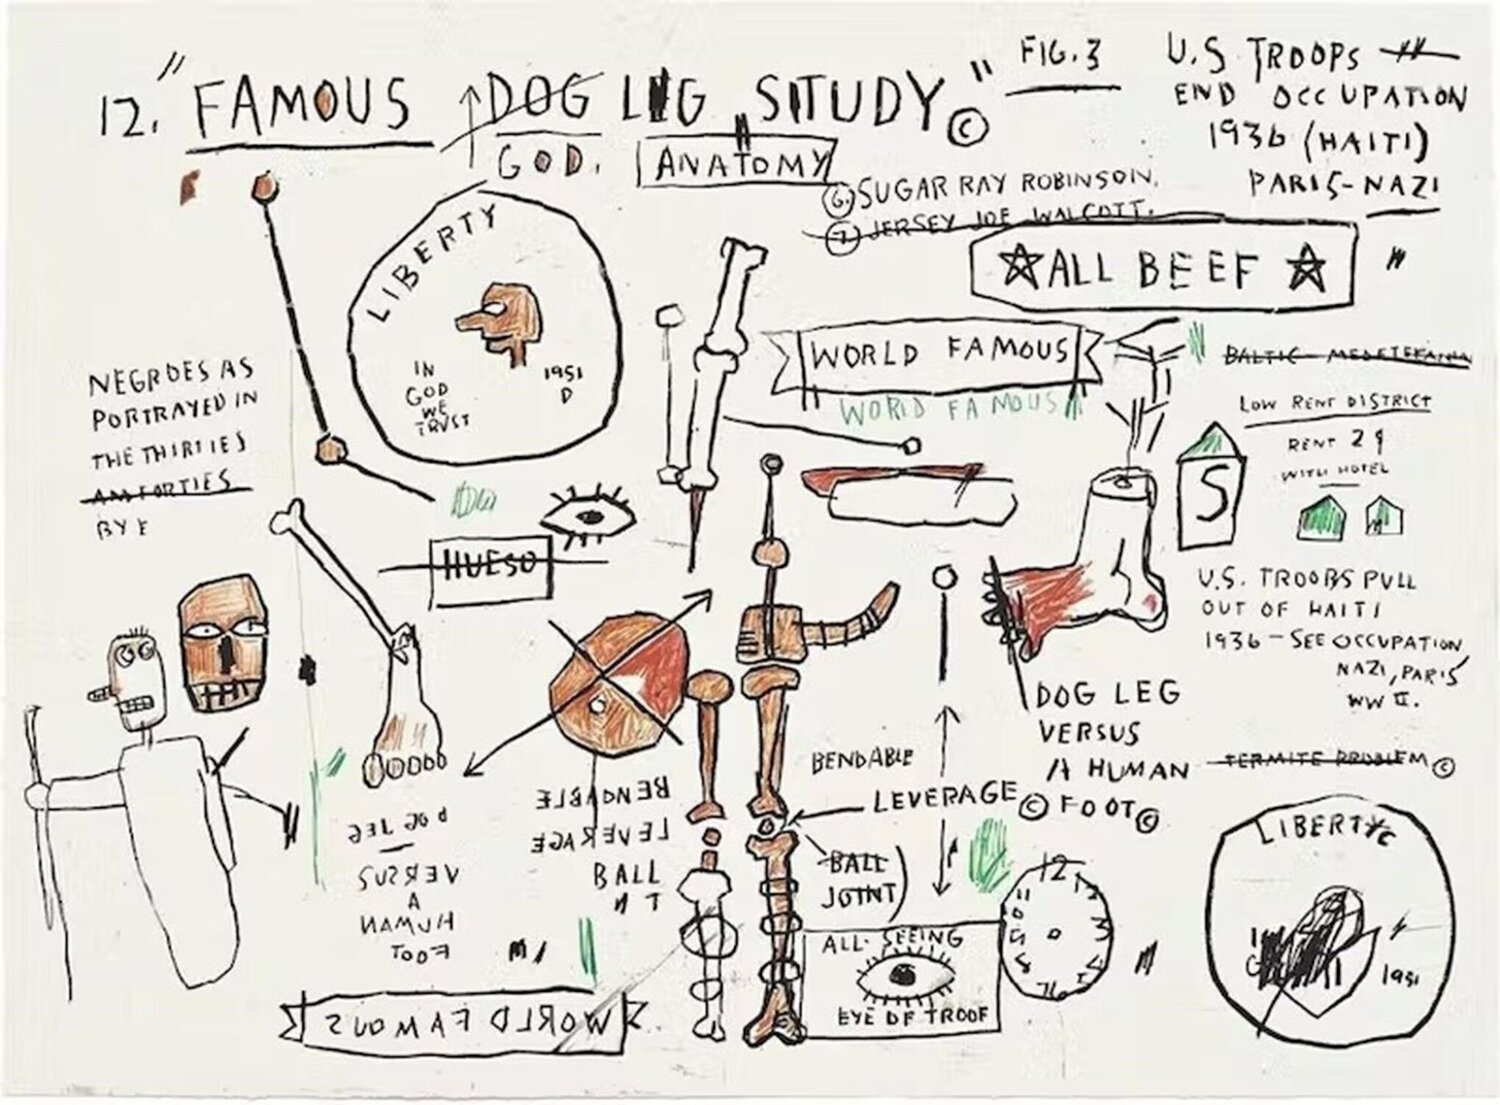 12. "FAMOUS DOG LEG STUDY" ©
GOD.
ANATOMY
FIG. 3
U.S TROOPS
END OCCUPATION
1936 (HAITI)
PARIS-NAZI
"
6. SUGAR RAY ROBINSON.
7. JERSEY JOE WALCOTT.
☆ALL BEEF☆
LIBERTY
IN
GOD
WE
TRVST
1951
D
WORLD FAMOUS
WORLD FAMOUS
BALTIC
LOW RENT DISTRICT
RENT 2¢
WITH HOTEL
S
NEGROES AS
PORTRAYED IN
THE THIRTIES
AM FORTIES
BY E
HUESO
U.S. TROOPS PULL
OUT OF HAITI
1936 - SEE OCCUPATION
NAZI, PARIS
WW II.
DOG LEG
VERSUS
A HUMAN
FOOT©
TERMITE PROBLEM©
BENDABLE
LEVERAGE©
BALL
JOINT)
BENDABLE
LEVERAGE
BALL
DOG LEG
VERSUS
A
HUMAN
FOOT
WORLD FAMOUS
ALL SEEING
EYE OF TROOF
12
LIBERTY©
1951